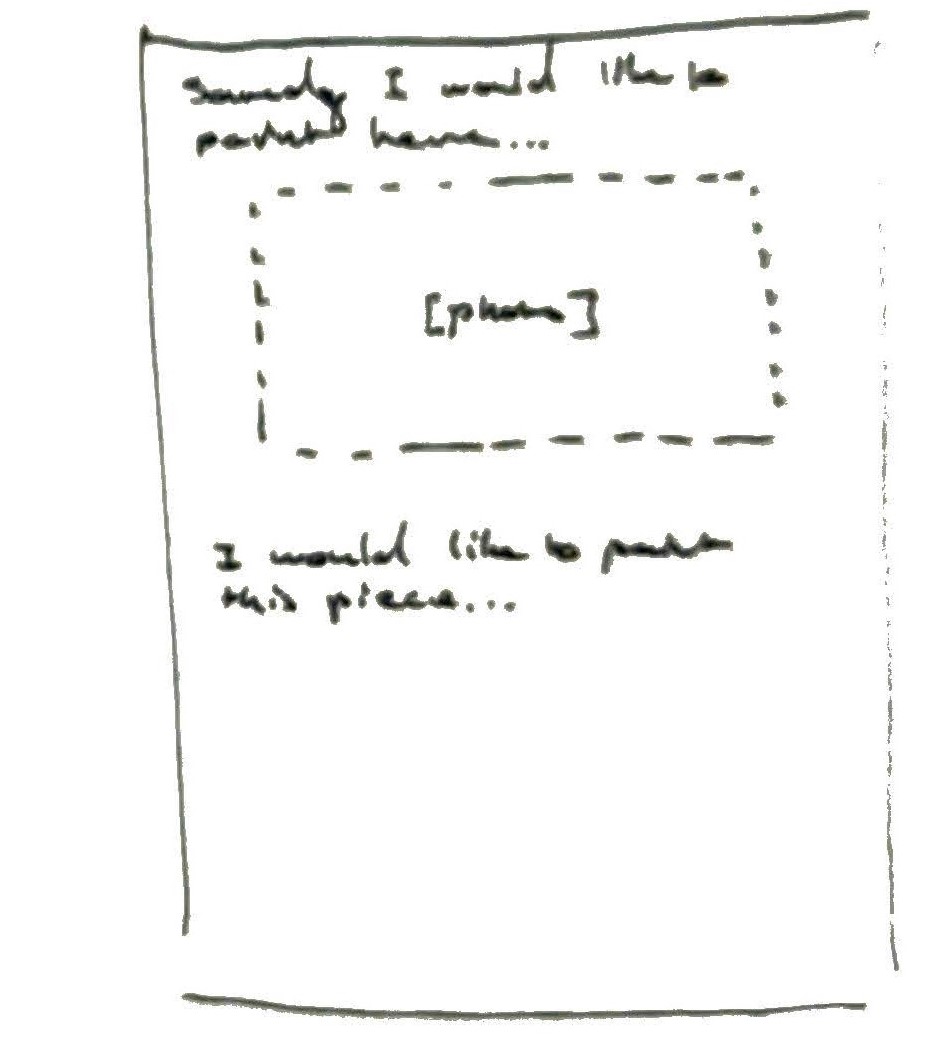 Someday I would like to
paint here...
[photo]
I would like to paint
this piece...